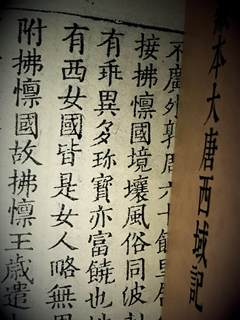 本大唐西域記
不廣外郭周六十餘里
接拂懍國境壤風俗同波剌
有乖異多珎寶亦富饒也
有西女國皆是女人略無
附拂懍國故拂懍王歲遣